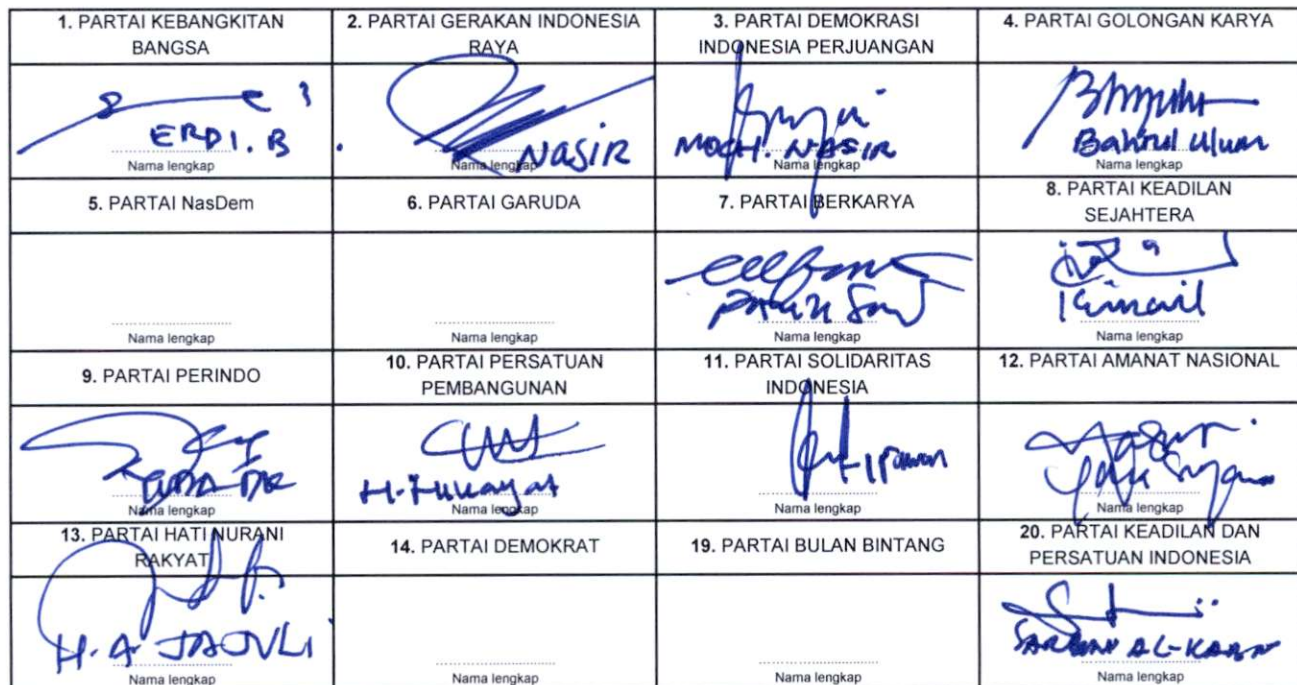 1. PARTAI KEBANGKITAN
BANGSA
2. PARTAI GERAKAN INDONESIA
RAYA
3. PARTAI DEMOKRASI
INDONESIA PERJUANGAN
4. PARTAI GOLONGAN KARYA
ERDI. B
Nama lengkap
NASIR
Nama lengkap
MOCH. NASIR
Nama lengkap
Bahrul ulum
Nama lengkap
5. PARTAI NasDem
6. PARTAI GARUDA
7. PARTAI BERKARYA
8. PARTAI KEADILAN
SEJAHTERA
Nama lengkap
Nama lengkap
Nama lengkap
Nama lengkap
9. PARTAI PERINDO
10. PARTAI PERSATUAN
PEMBANGUNAN
11. PARTAI SOLIDARITAS
INDONESIA
12. PARTAI AMANAT NASIONAL
Nama lengkap
H.
Nama lengkap
Nama lengkap
Nama lengkap
13. PARTAI HATI NURANI
RAKYAT
14. PARTAI DEMOKRAT
19. PARTAI BULAN BINTANG
20. PARTAI KEADILAN DAN
PERSATUAN INDONESIA
H. A. JAJULI
Nama lengkap
Nama lengkap
Nama lengkap
Nama lengkap